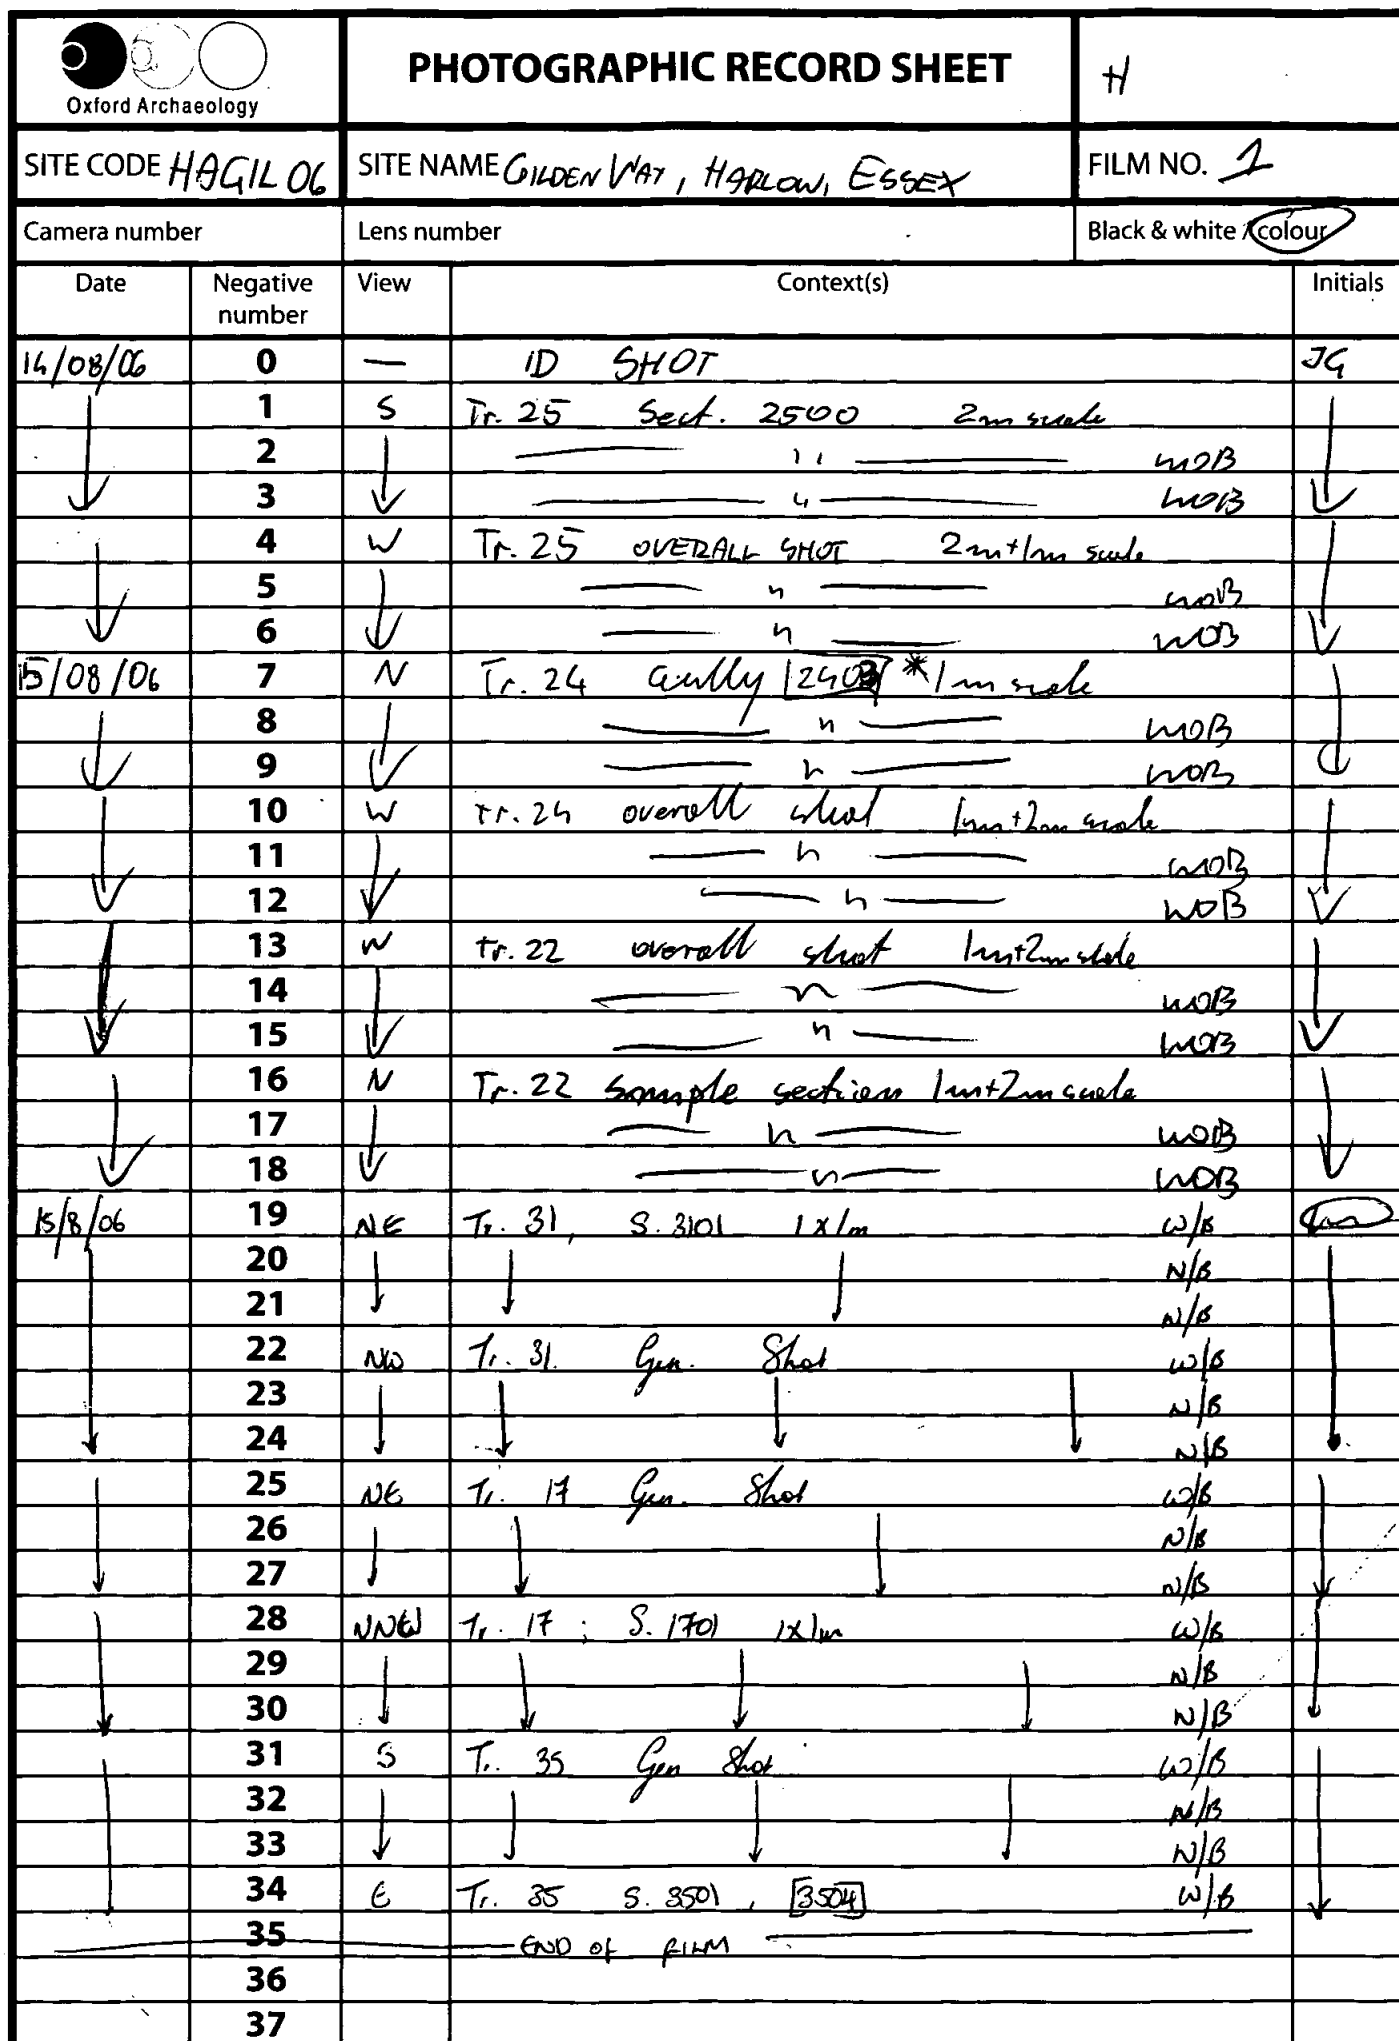 Oxford Archaeology
PHOTOGRAPHIC RECORD SHEET
H
SITE CODE HAGIL 06 SITE NAME GILDEN WAY, HARLOW, ESSEX FILM NO. 1
Camera number Lens number Black & white / colour
Date Negative number View Context(s) Initials
14/08/06 0 — ID SHOT JG
1 S Tr. 25 Sect. 2500 2m scale
2 — " — WOB
3 — " — WOB
4 W Tr. 25 OVERALL SHOT 2m+1m scale
5 — " — WOB
6 — " — WOB
15/08/06 7 N Tr. 24 Gully [2403] * 1m scale
8 — " — WOB
9 — " — WOB
10 W Tr. 24 overall shot 1m+2m scale
11 — " — WOB
12 — " — WOB
13 W Tr. 22 overall shot 1m+2m scale
14 — " — WOB
15 — " — WOB
16 N Tr. 22 Sample section 1m+2m scale
17 — " — WOB
18 — " — WOB
15/8/06 19 NE Tr. 31, S. 3101 1x1m W/B
20 N/B
21 N/B
22 NW Tr. 31. Gen. Shot W/B
23 N/B
24 N/B
25 NE Tr. 17 Gen. Shot W/B
26 N/B
27 N/B
28 NNW Tr. 17; S. 1701 1x1m W/B
29 N/B
30 N/B
31 S Tr. 35 Gen Shot W/B
32 N/B
33 N/B
34 E Tr. 35 S. 3501, [3504] W/B
35 — END OF FILM —
36
37